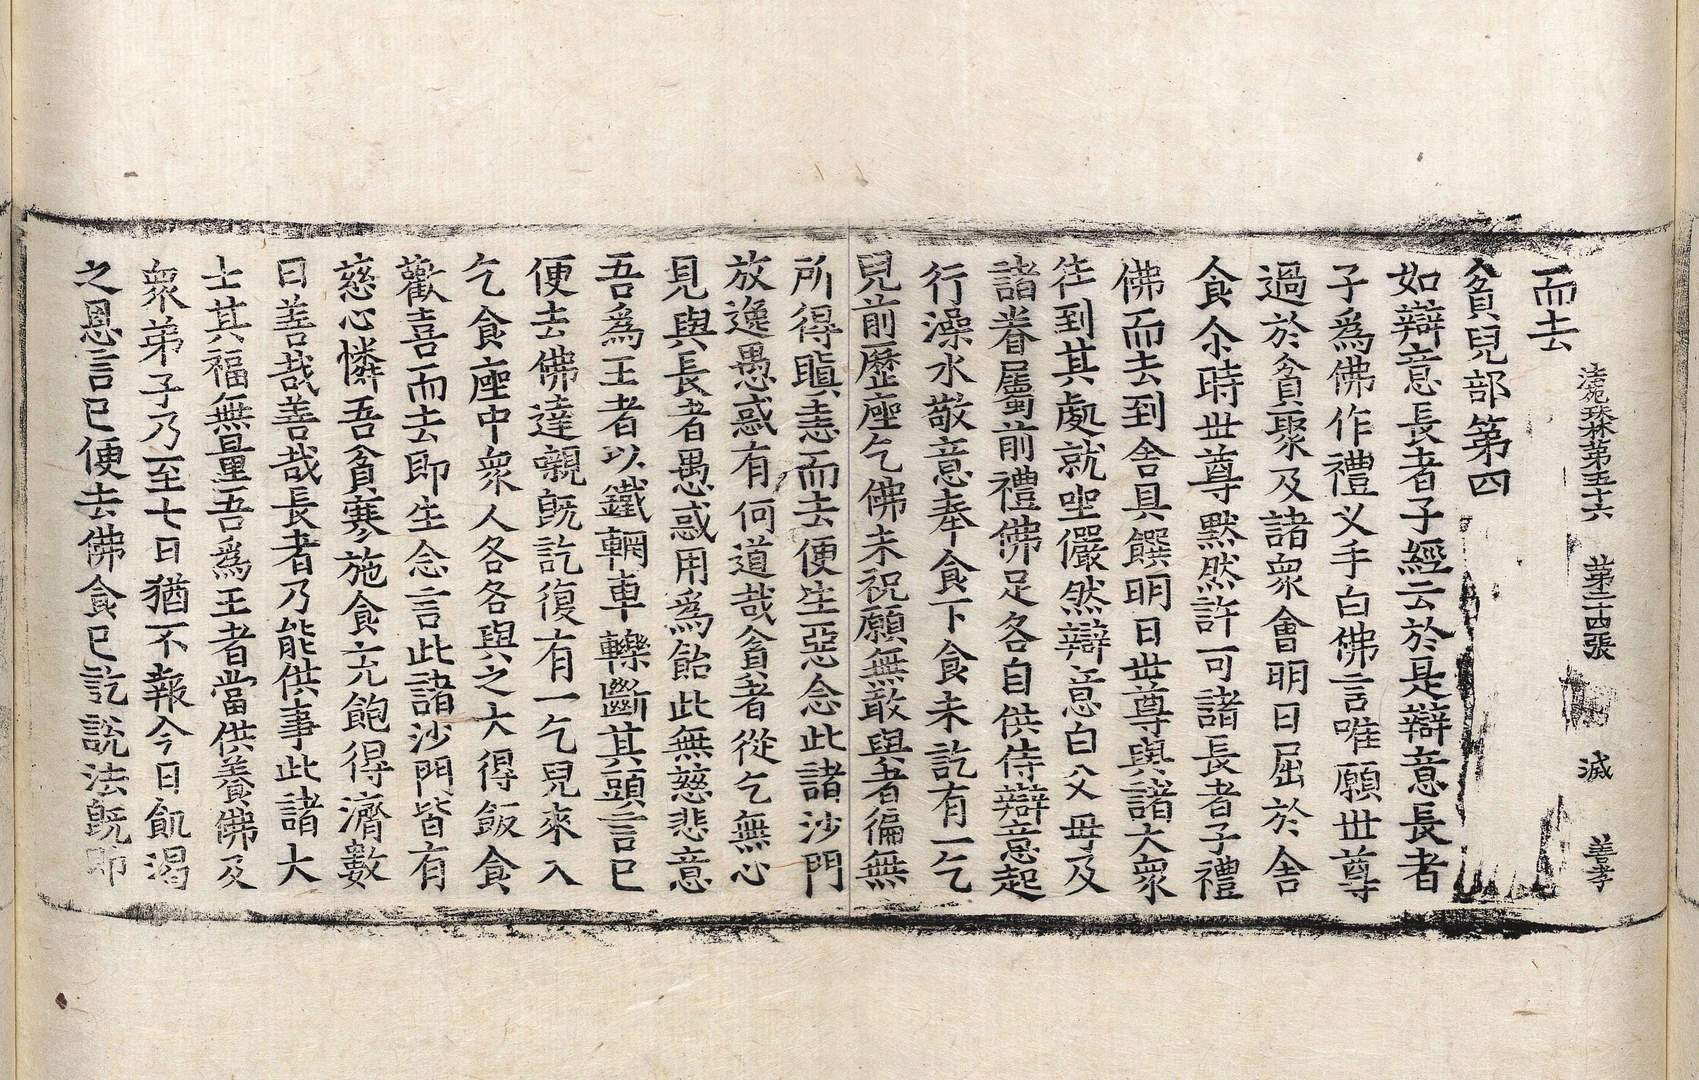 法苑珠林第五十六　第二十四張　滅　善孝
而去
貧兒部第四
如辯意長者子經云於是辯意長者
子爲佛作禮叉手白佛言唯願世尊
過於貧聚及諸衆會明日屈於舍
食尒時世尊默然許可諸長者子禮
佛而去到舍具饌明日世尊與諸大衆
徃到其處就坐儼然辯意白父母及
諸眷屬前禮佛足各自供侍辯意起
行澡水敬意奉食下食未訖有一乞
兒前歷座乞佛未祝願無敢與者徧無
所得瞋恚而去便生惡念此諸沙門
放逸愚惑有何道哉貧者從乞無心
見與長者愚惑用爲飴此無慈悲意
吾爲王者以鐵輞車轢斷其頭言已
便去佛達嚫旣訖復有一乞兒來入
乞食座中衆人各各與之大得飯食
歡喜而去即生念言此諸沙門皆有
慈心憐吾貧寒施食充飽得濟數
日善哉善哉長者乃能供事此諸大
士其福無量吾爲王者當供養佛及
衆弟子乃至七日猶不報今日飢渴
之恩言已便去佛食已訖說法旣即